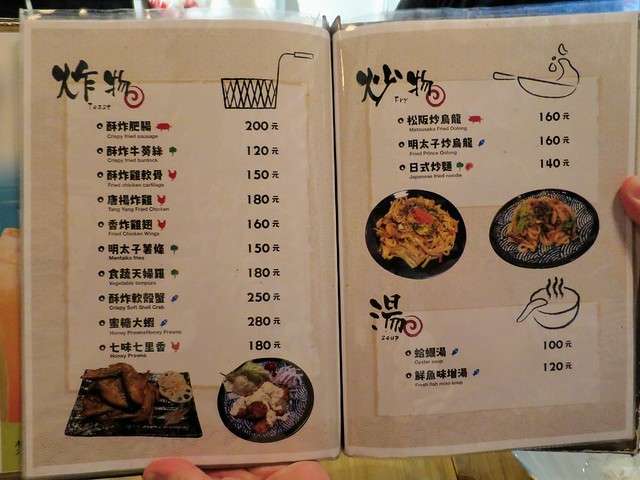 炸物
Toast
酥炸肥腸 200元
Crispy fried sausage
酥炸牛蒡絲 120元
Crispy fried burdock
酥炸雞軟骨 150元
Fried chicken cartilage
唐楊炸雞 180元
Tang Yang Fried Chicken
香炸雞翅 160元
Fried Chicken Wings
明太子薯條 150元
Mentaiko fries
食蔬天婦羅 180元
Vegetable tempura
酥炸軟殼蟹 250元
Crispy Soft Shell Crab
蜜糖大蝦 280元
Honey PrawnsHoney Prawns
七味七里香 180元
Honey Prawns
炒物
Fry
松阪炒烏龍 160元
Matsusaka Fried Oolong
明太子炒烏龍 160元
Fried Prince Oolong
日式炒麵 140元
Japanese fried noodle
湯
Soup
蛤蠣湯 100元
Oyster soup
鮮魚味增湯 120元
Fresh fish miso soup